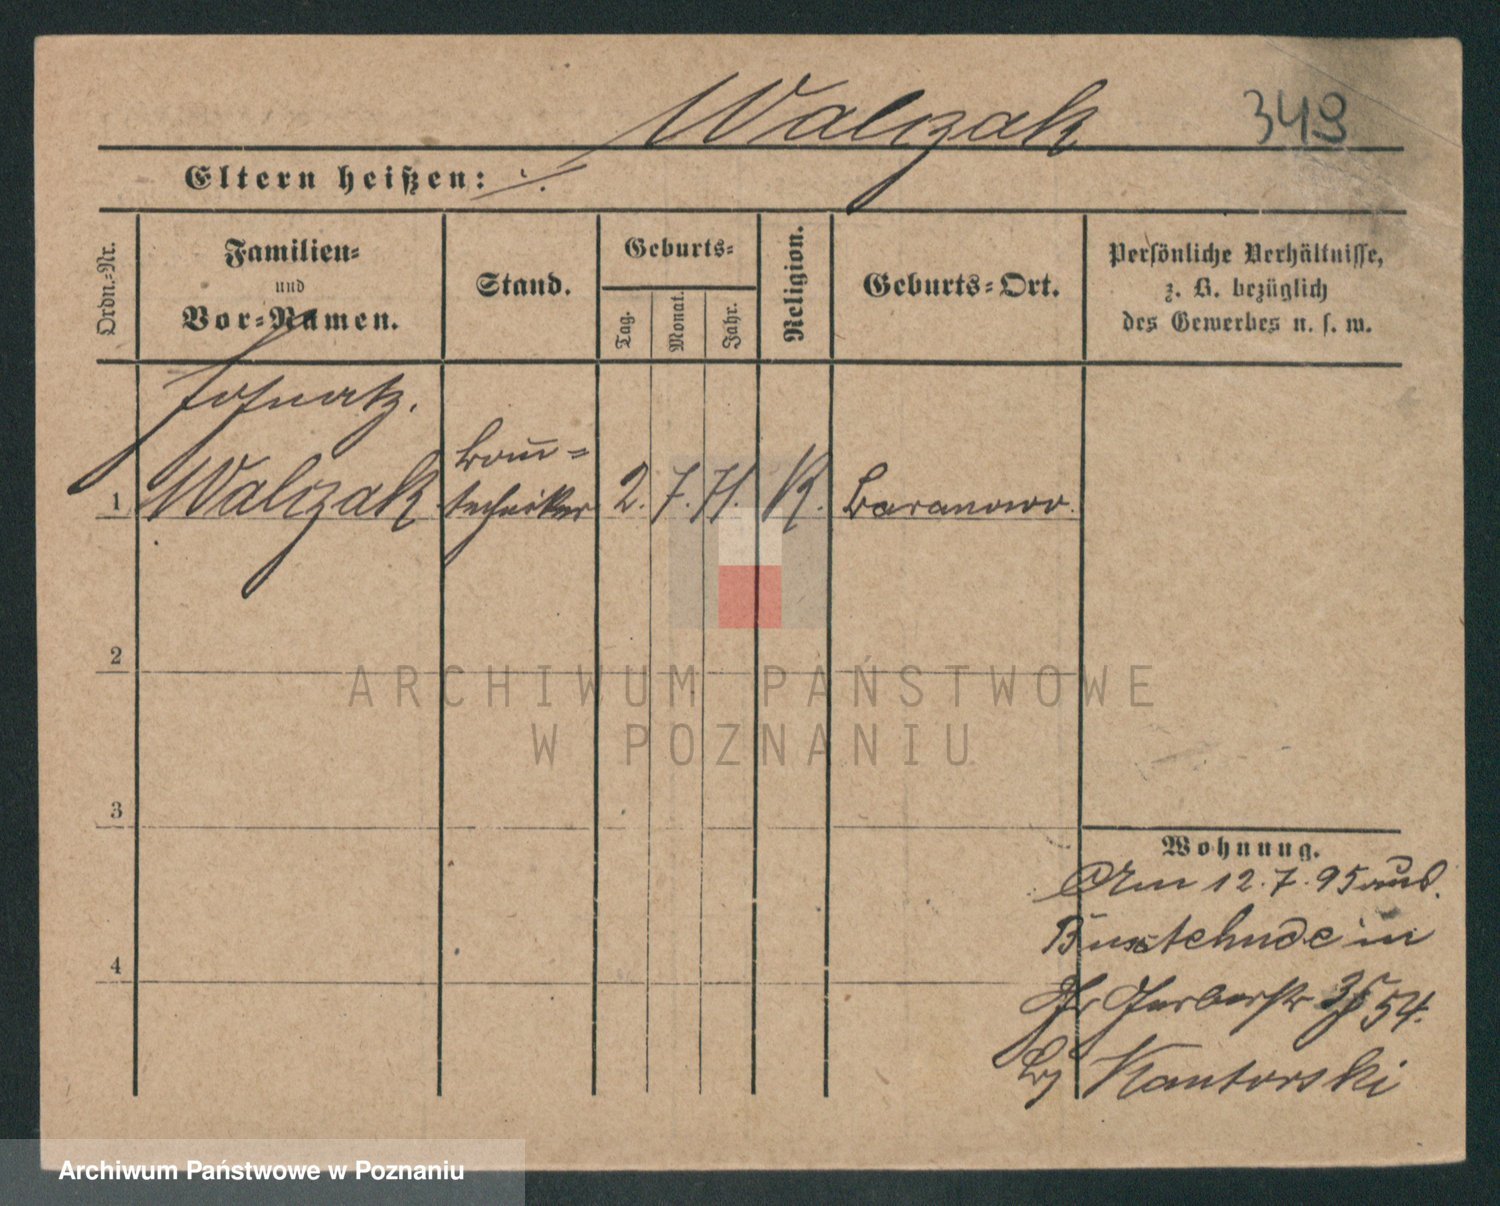 Walczak 349
Eltern heißen: ·/.
Ordn.=Nr.
Familien=
und
Vor=Namen.
Stand.
Geburts=
Tag.
Monat.
Jahr.
Religion.
Geburts=Ort.
Persönliche Verhältnisse,
z. B. bezüglich
des Gewerbes u. s. w.
1 Walczak
techniker 2. 7. 71. K. Baranowo.
2
ARCHIWUM PAŃSTWOWE
W POZNANIU
3
Wohnung.
Am 12. 7. 95 aus.
Buxtehude in
Gr Gerberstr 54.
by Kantorski
4
Archiwum Państwowe w Poznaniu